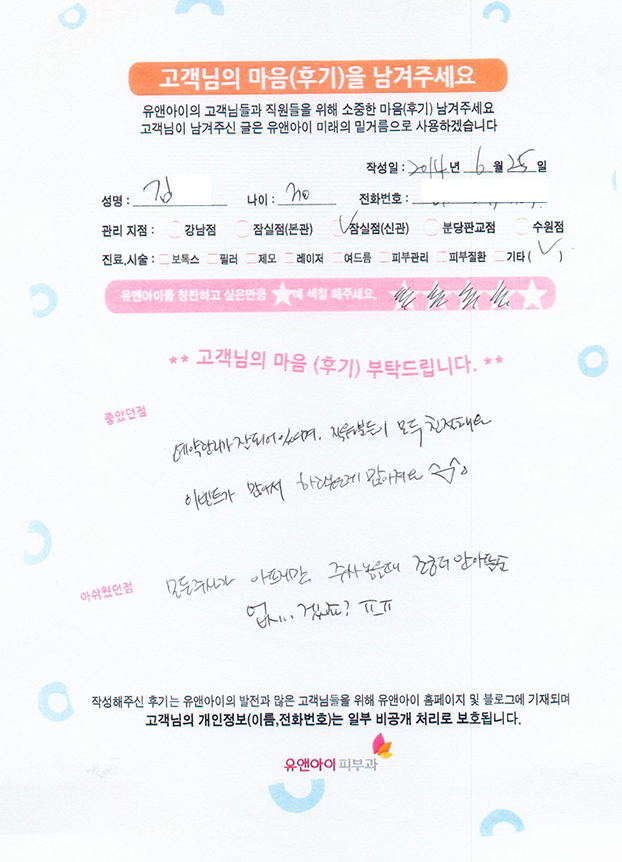 고객님의 마음(후기)을 남겨주세요
유앤아이의 고객님들과 직원들을 위해 소중한 마음(후기) 남겨주세요
고객님이 남겨주신 글은 유앤아이 미래의 밑거름으로 사용하겠습니다
작성일 : 2014년 6월 25일
성명 : 김 나이 : 전화번호 :
관리 지점 : 강남점 잠실점(본관) 잠실점(신관) 분당판교점 수원점
진료.시술 : 보톡스 필러 제모 레이저 여드름 피부관리 피부질환 기타 ( )
유앤아이를 칭찬하고 싶은만큼 ★에 색칠 해주세요.
** 고객님의 마음 (후기) 부탁드립니다. **
좋았던점
예약관리가 잘되어있으며, 직원분들이 모두 친절해요
이벤트가 많아서 많아져요
아쉬웠던점
모든주사가 아프지만, 주사놓을때 조금더 안아플순
없시... 겠죠? ㅠㅠ
작성해주신 후기는 유앤아이의 발전과 많은 고객님들을 위해 유앤아이 홈페이지 및 블로그에 기재되며
고객님의 개인정보(이름,전화번호)는 일부 비공개 처리로 보호됩니다.
유앤아이 피부과